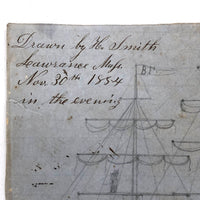 Drawn by H. Smith
Lawrance Mass.
Nov. 30th 1854
in the evening
B